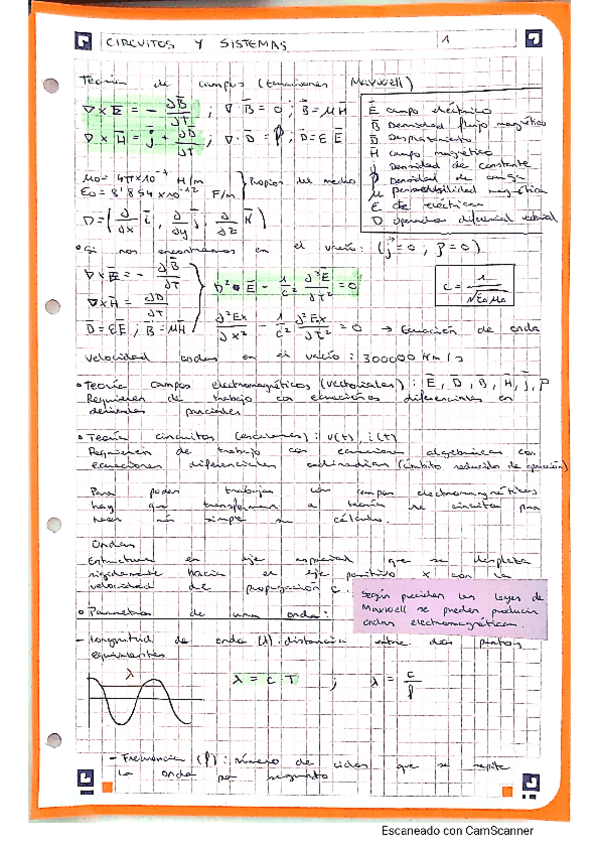 CIRCUITOS Y SISTEMAS 1
Teoría de campos (Ecuaciones Maxwell)
∇ × E̅ = - ∂B̅/∂T ; ∇ · B̅ = 0 ; B̅ = μH̅
∇ × H̅ = j̅ + ∂D̅/∂T ; ∇ · D̅ = ρ ; D̅ = Ɛ E̅
E̅ campo eléctrico
B̅ Densidad flujo magnético
D̅ Desplazamiento
H̅ campo magnético
j̅ Densidad de constante
ρ Densidad de carga
μ permeabilidad magnética
Ɛ de eléctrica
D operador diferencial vectorial
μ0 = 4π×10⁻⁷ H/m
Ɛ0 = 8'854×10⁻¹² F/m } Propios del medio
D = (∂/∂x i̅, ∂/∂y j̅, ∂/∂z k̅)
• Si nos encontramos en el vacío: (j̅ = 0 ; ρ = 0)
∇ × E̅ = - ∂B̅/∂T
∇ × H̅ = ∂D̅/∂T
D̅ = ƐE̅ ; B̅ = μH̅
D² · E̅ - 1/c² ∂²E̅/∂t² = 0
c = 1/√Ɛ0 μ0
∂²Ex/∂x² - 1/c² ∂²Ex/∂t² = 0 → Ecuación de onda
Velocidad ondas en el vacío : 300000 Km/s
• Teoría campos electromagnéticos (vectoriales) : E̅, D̅, B̅, H̅, j̅, ρ
Requieren de trabajo con ecuaciones diferenciales en
derivadas parciales
• Teoría circuitos (escalares) : v(t), i(t)
Requieren de trabajo con ecuaciones algebraicas con
ecuaciones diferenciales ordinarias (ámbito reducido de operación)
Para poder trabajar con campos electromagnéticos
hay que transformar a teoría de circuitos para
hacer más simple su cálculo.
Ondas
Estructura en eje espacial que se desplaza
rígidamente hacia el eje positivo x con la
velocidad de propagación c.
Según predicen las leyes de
Maxwell se pueden producir
ondas electromagnéticas.
• Parámetros de una onda:
- Longitud de onda (λ) : distancia entre dos puntos
equivalentes
λ
λ = c · T ; λ = c/f
- Frecuencia (f) : número de ciclos que se repite
la onda por segundo
Escaneado con CamScanner